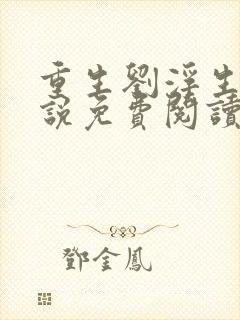 重生劉淫生
說免費閱讀
鄧金鳳